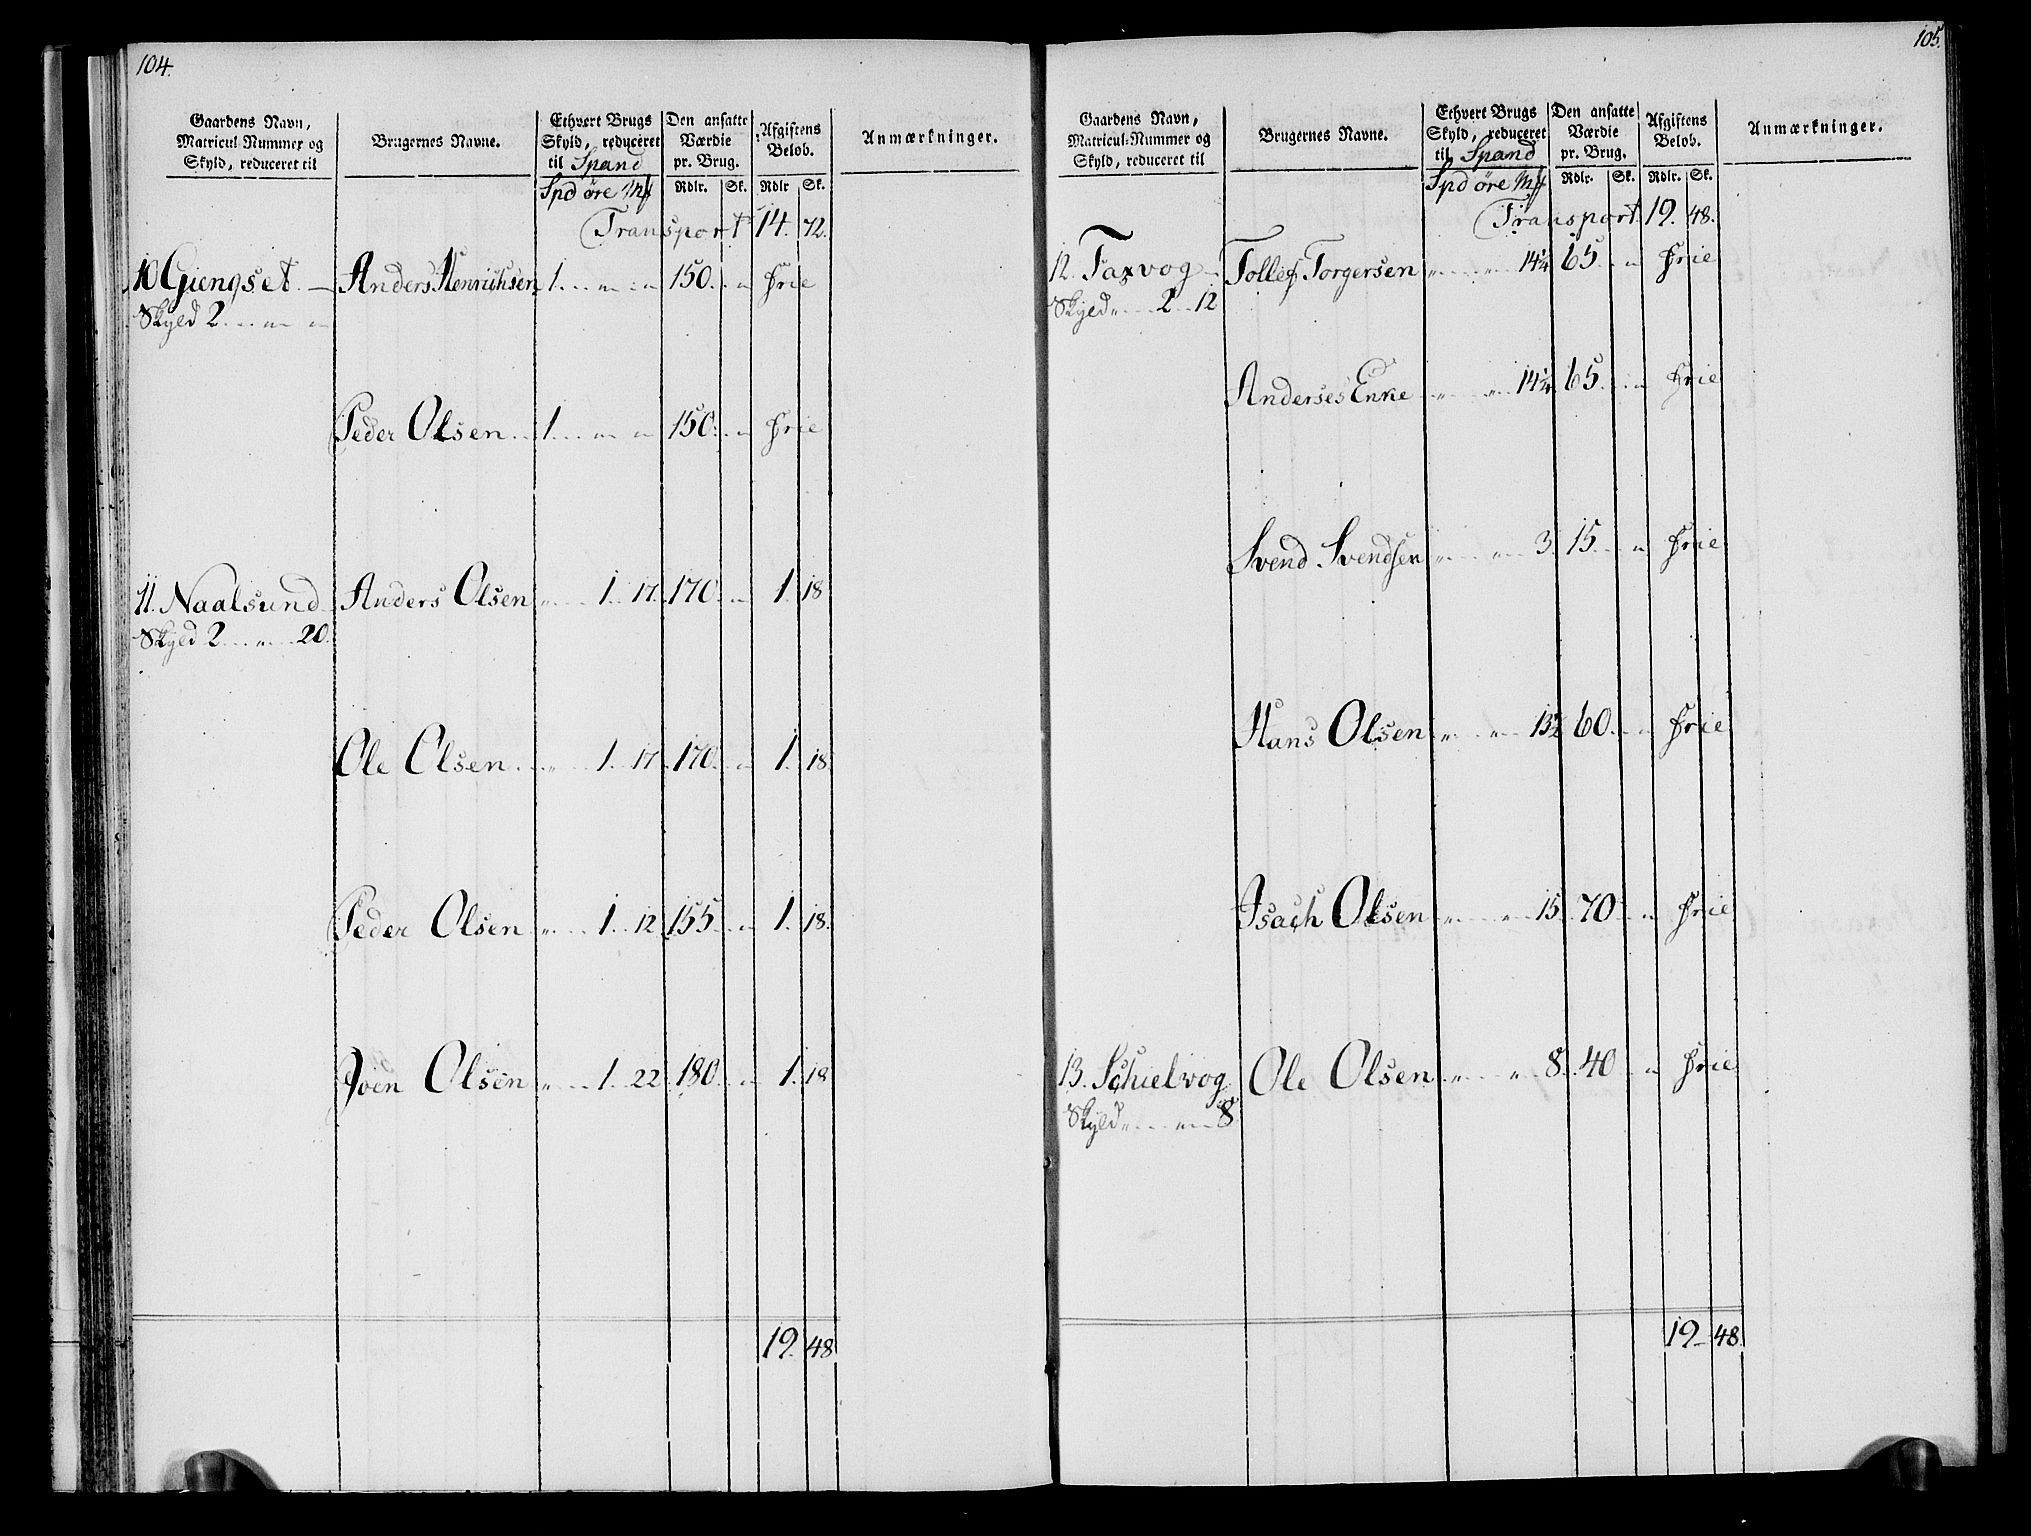 104.
Gaardens Navn, Matricul-Nummer og Skyld, reduceret til
Brugernes Navne.
Ethvert Brugs Skyld, reduceret til Spand
Spd öre
Den ansatte Værdie pr. Brug.
Rdlr. Sk.
Afgiftens Beløb.
Rdlr Sk.
Anmærkninger.
Transport 14. 72.
10 Giengset. Anders Henrichsen 1 150. Frie
Skyld 2
Peder Olsen 1 150. Frie
11. Naalsund Anders Olsen 1. 17. 170. 1. 18
Skyld 2 20.
Ole Olsen 1. 17. 170. 1. 18.
Peder Olsen 1. 12. 155 1. 18.
Joen Olsen 1. 22. 180. 1. 18
19. 48
105.
Gaardens Navn, Matricul-Nummer og Skyld, reduceret til
Brugernes Navne.
Ethvert Brugs Skyld, reduceret til Spand
Spd öre
Den ansatte Værdie pr. Brug.
Rdlr. Sk.
Afgiftens Beløb.
Rdlr. Sk.
Anmærkninger.
Transport 19. 48.
12. Taxvog Tollef Torgersen 14¼ 65. Frie
Skyld 2 12
Anderses Enke 14¼ 65. Frie
Svend Svendsen 3. 15 Frie
Hans Olsen 13½ 60. Frie
Isach Olsen 15. 70 Frie
13. Schielvog Ole Olsen 8. 40 Frie
Skyld 8
19 48.